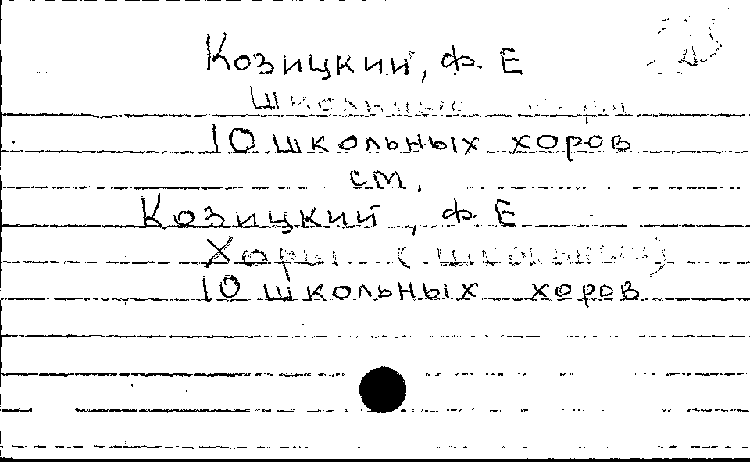 Козицкий, Ф. Е
Школьные хоры
10 школьных хоров
см.
Козицкий, Ф. Е
Хоры (школьные)
10 школьных хоров